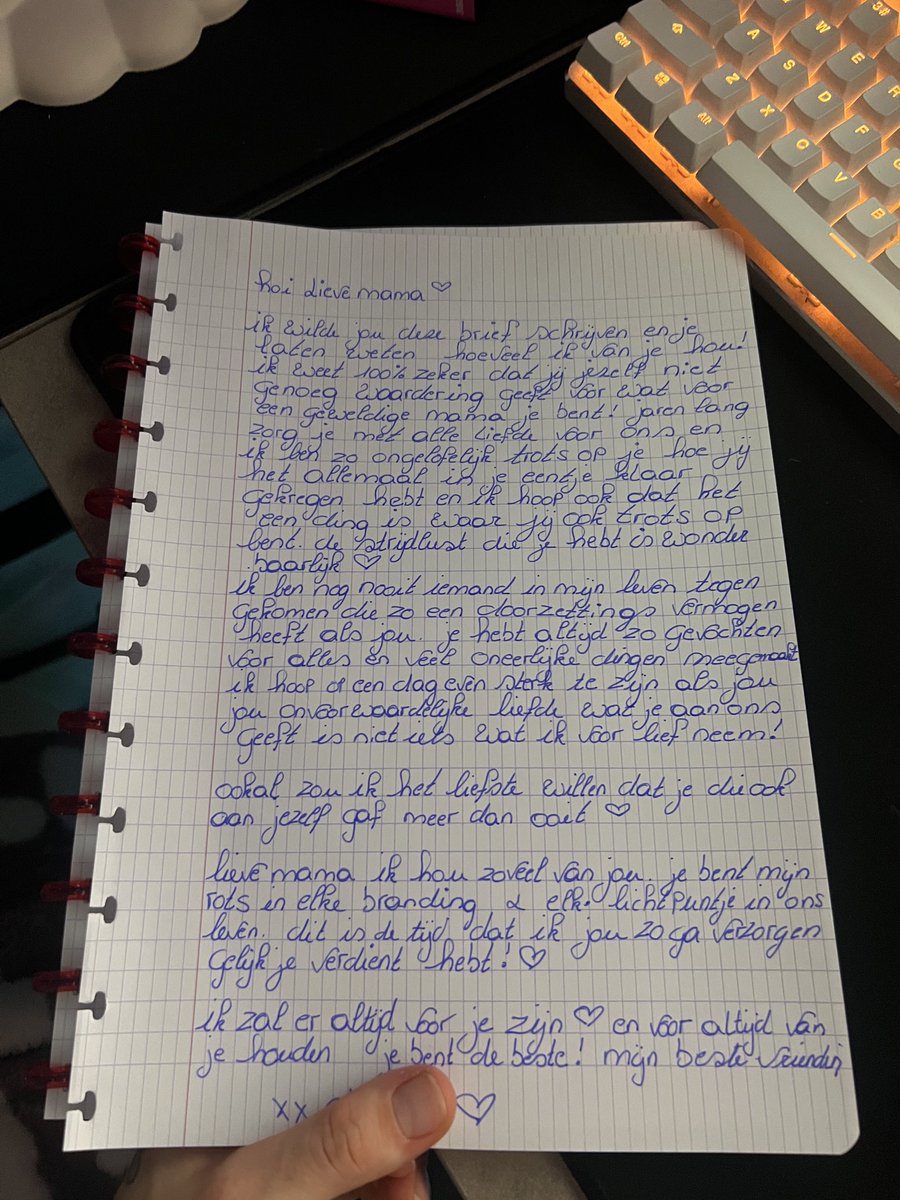 hoi lieve mama ♡
ik wilde jou deze brief schrijven en je
laten weten hoeveel ik van je hou!
ik weet 100% zeker dat jij jezelf niet
genoeg waardering geeft voor wat voor
een geweldige mama je bent! jaren lang
zorg je met alle liefde voor ons en
ik ben zo ongelofelijk trots op je hoe jij
het allemaal in je eentje klaar
gekregen hebt en ik hoop ook dat het
een ding is waar jij ook trots op
bent. de strijdlust die je hebt is wonder
baarlijk ♡
ik ben nog nooit iemand in mijn leven tegen
gekomen die zo een doorzettings vermogen
heeft als jou. je hebt altijd zo gevochten
voor alles en veel oneerlijke dingen meegemaakt
ik hoop op een dag even sterk te zijn als jou
jou onvoorwaardelijke liefde wat je aan ons
geeft is niet iets wat ik voor lief neem!
ookal zou ik het liefste willen dat je die ook
aan jezelf gaf meer dan ooit ♡
lieve mama ik hou zoveel van jou. je bent mijn
rots in elke branding & elk lichtpuntje in ons
leven. dit is de tijd dat ik jou zo ga verzorgen
gelijk je verdient hebt! ♡
ik zal er altijd voor je zijn ♡ en voor altijd van
je houden je bent de beste! mijn beste vriendin
xx ♡
Ctrl Alt A Z S X W D C E F V R B 3 #